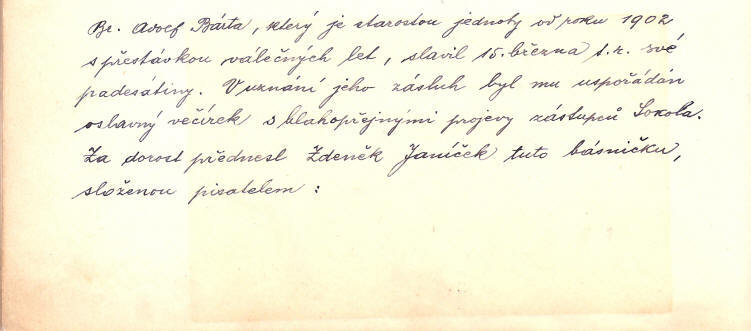 Br. Adolf Bárta, který je starostou jednoty od roku 1902
s přestávkou válečných let, slavil 15. března t. r. své
padesátiny. V uznání jeho zásluh byl mu uspořádán
oslavný večírek s blahopřejnými projevy zástupců Sokola.
Za dorost přednesl Zdeněk Janíček tuto básničku,
složenou pisatelem :